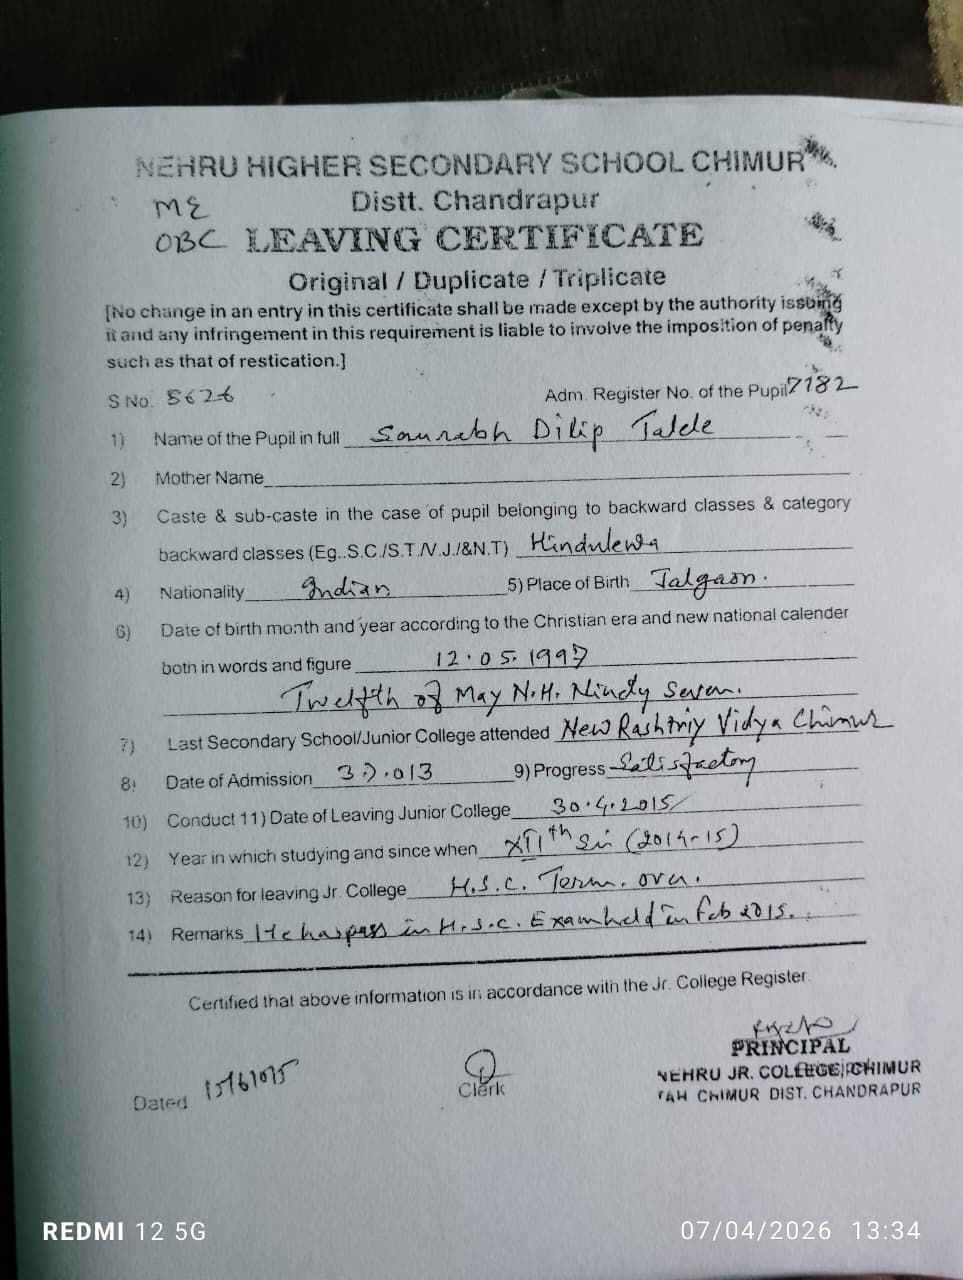 NEHRU HIGHER SECONDARY SCHOOL CHIMUR
Distt. Chandrapur
OBC LEAVING CERTIFICATE
Original / Duplicate / Triplicate
[No change in an entry in this certificate shall be made except by the authority issuing
it and any infringement in this requirement is liable to involve the imposition of penalty
such as that of restication.]
S No. 5626 Adm. Register No. of the Pupil 7182
1) Name of the Pupil in full Saurabh Dilip Talele
2) Mother Name
3) Caste & sub-caste in the case of pupil belonging to backward classes & category
backward classes (Eg..S.C./S.T./V.J./&N.T) Hindulewa
4) Nationality Indian 5) Place of Birth Jalgaon.
6) Date of birth month and year according to the Christian era and new national calender
both in words and figure 12.05.1997
Twelfth of May N.H. Nindy Seven.
7) Last Secondary School/Junior College attended New Rashtriy Vidya Chimur
8) Date of Admission 013 9) Progress Satisfactory
10) Conduct 11) Date of Leaving Junior College 30.4.2015
12) Year in which studying and since when XIIth Sin (2014-15)
13) Reason for leaving Jr. College H.S.C. Term. over.
14) Remarks He has pass in H.S.C. Exam held in Feb 2015.
Certified that above information is in accordance with the Jr. College Register.
PRINCIPAL
Dated Clerk NEHRU JR. COLLEGE, CHIMUR
TAH CHIMUR DIST. CHANDRAPUR
REDMI 12 5G 07/04/2026 13:34